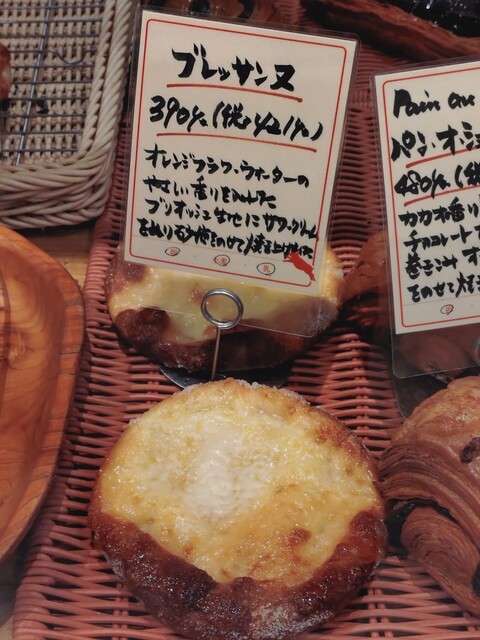 ブレッサンヌ
390yく(税込421yく)
オレンジフラワーウォーターの
やさしい香りをふくんだ
ブリオッシュ生地にサワークリーム
をぬり砂糖をのせて焼き上げました
卵 麦 乳
Pain au
パン・オ・ショ
480yく(税
カカオ香り
チョコレート
巻きこみ オ
をのせて焼き